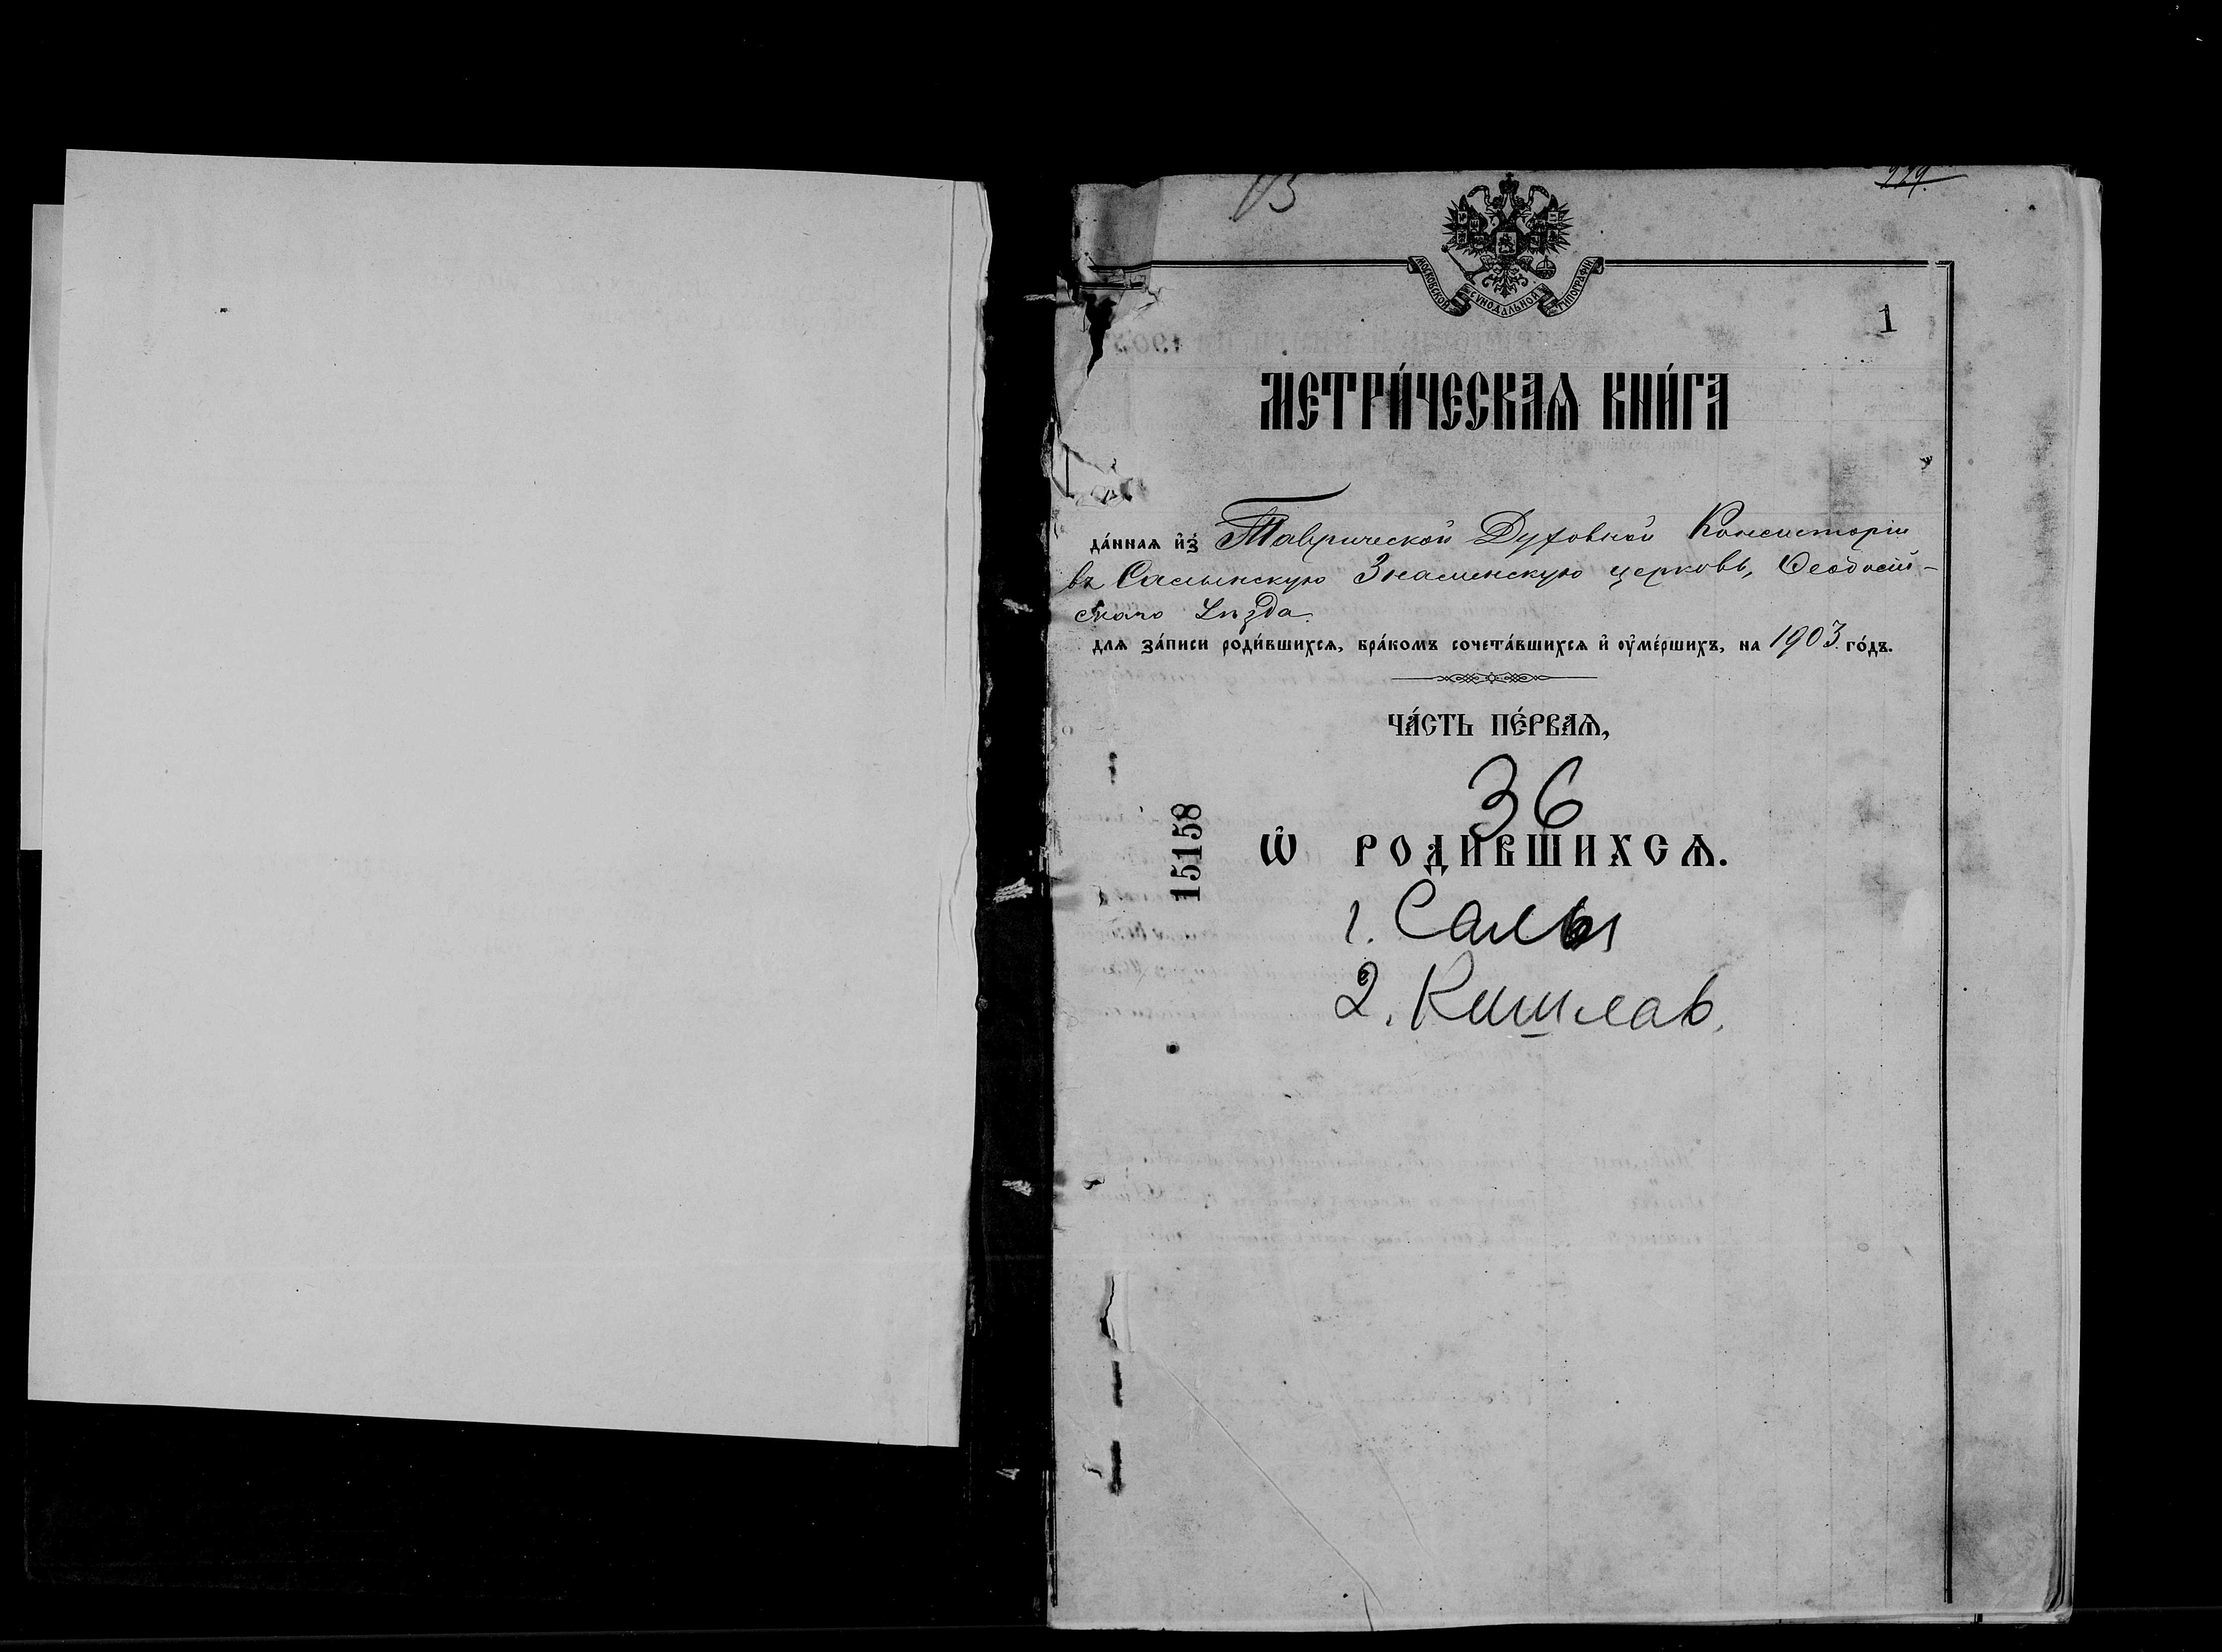 03
229.
МОСКОВСКОЙ СУНОДАЛЬНОЙ ТИПОГРАФІИ
1
МЕТРИ́ЧЕСКАѦ КНИ́ГА
да́ннаѧ и҆з̾ Таврической Духовной Консисторіи
въ Салынскую Знаменскую церковь, Ѳеодосій-
скаго уѣзда.
для за́писи роди́вшихсѧ, бра́комъ сочета́вшихсѧ и҆ оу҆ме́ршихъ, на 1903 го́дъ.
ЧА́СТЬ ПЕ́РВАѦ,
36
Ѡ҆ РОДИ́ВШИХСѦ.
15158
1. Салы
2. Кишлав.